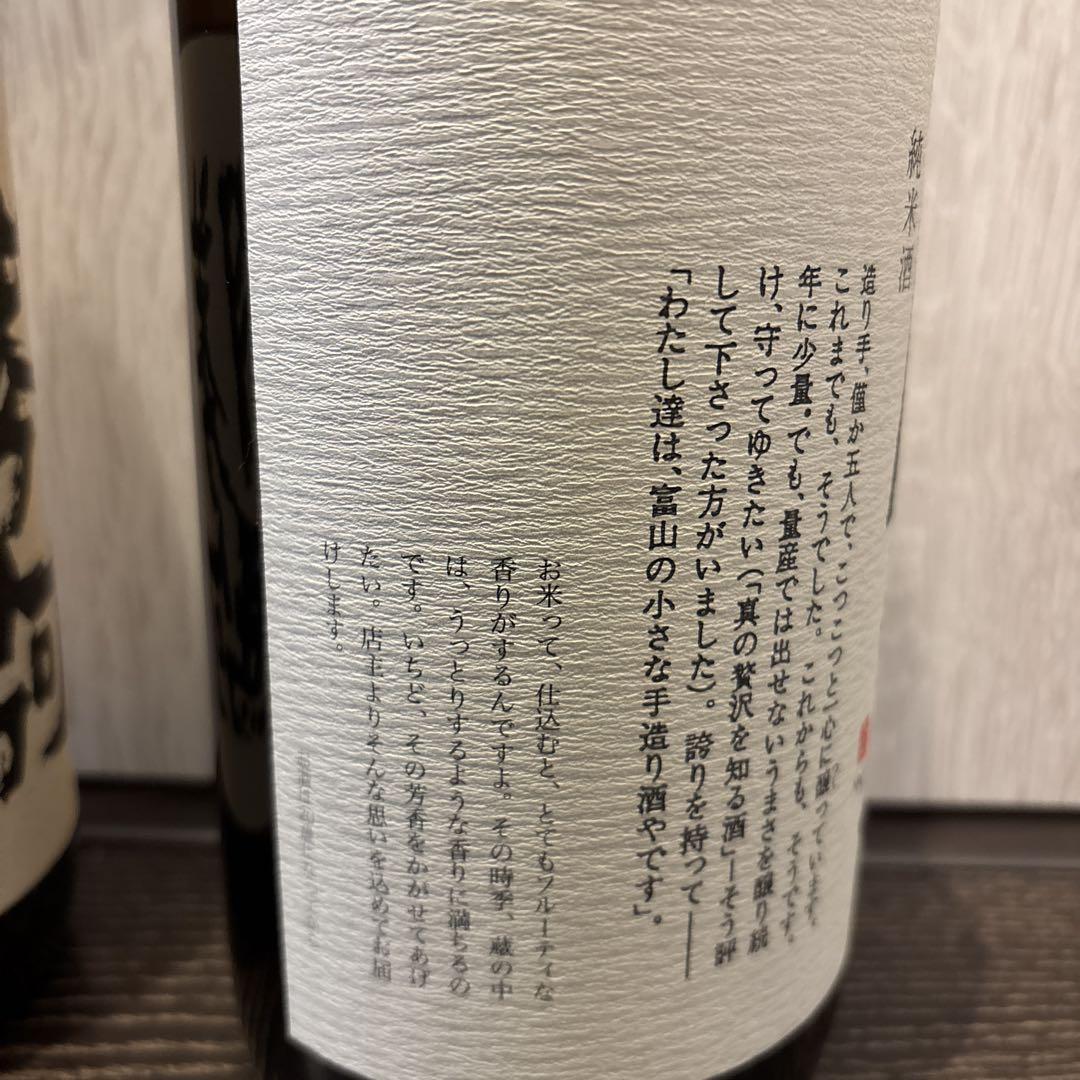 純米酒
造り手、僅か五人で、こつこつと一心に醸っています。
これまでも、そうでした。これからも、そうです。
年に少量。でも、量産では出せないうまさを醸り続
け、守ってゆきたい(「真の贅沢を知る酒」―そう評
して下さった方がいました)。誇りを持って――
「わたし達は、富山の小さな手造り酒やです」。
お米って、仕込むと、とてもフルーティな
香りがするんですよ。その時季、蔵の中
は、うっとりするような香りに満ちるの
です。いちど、その芳香をかがせてあげ
たい。店主よりそんな思いを込めてお届
けします。